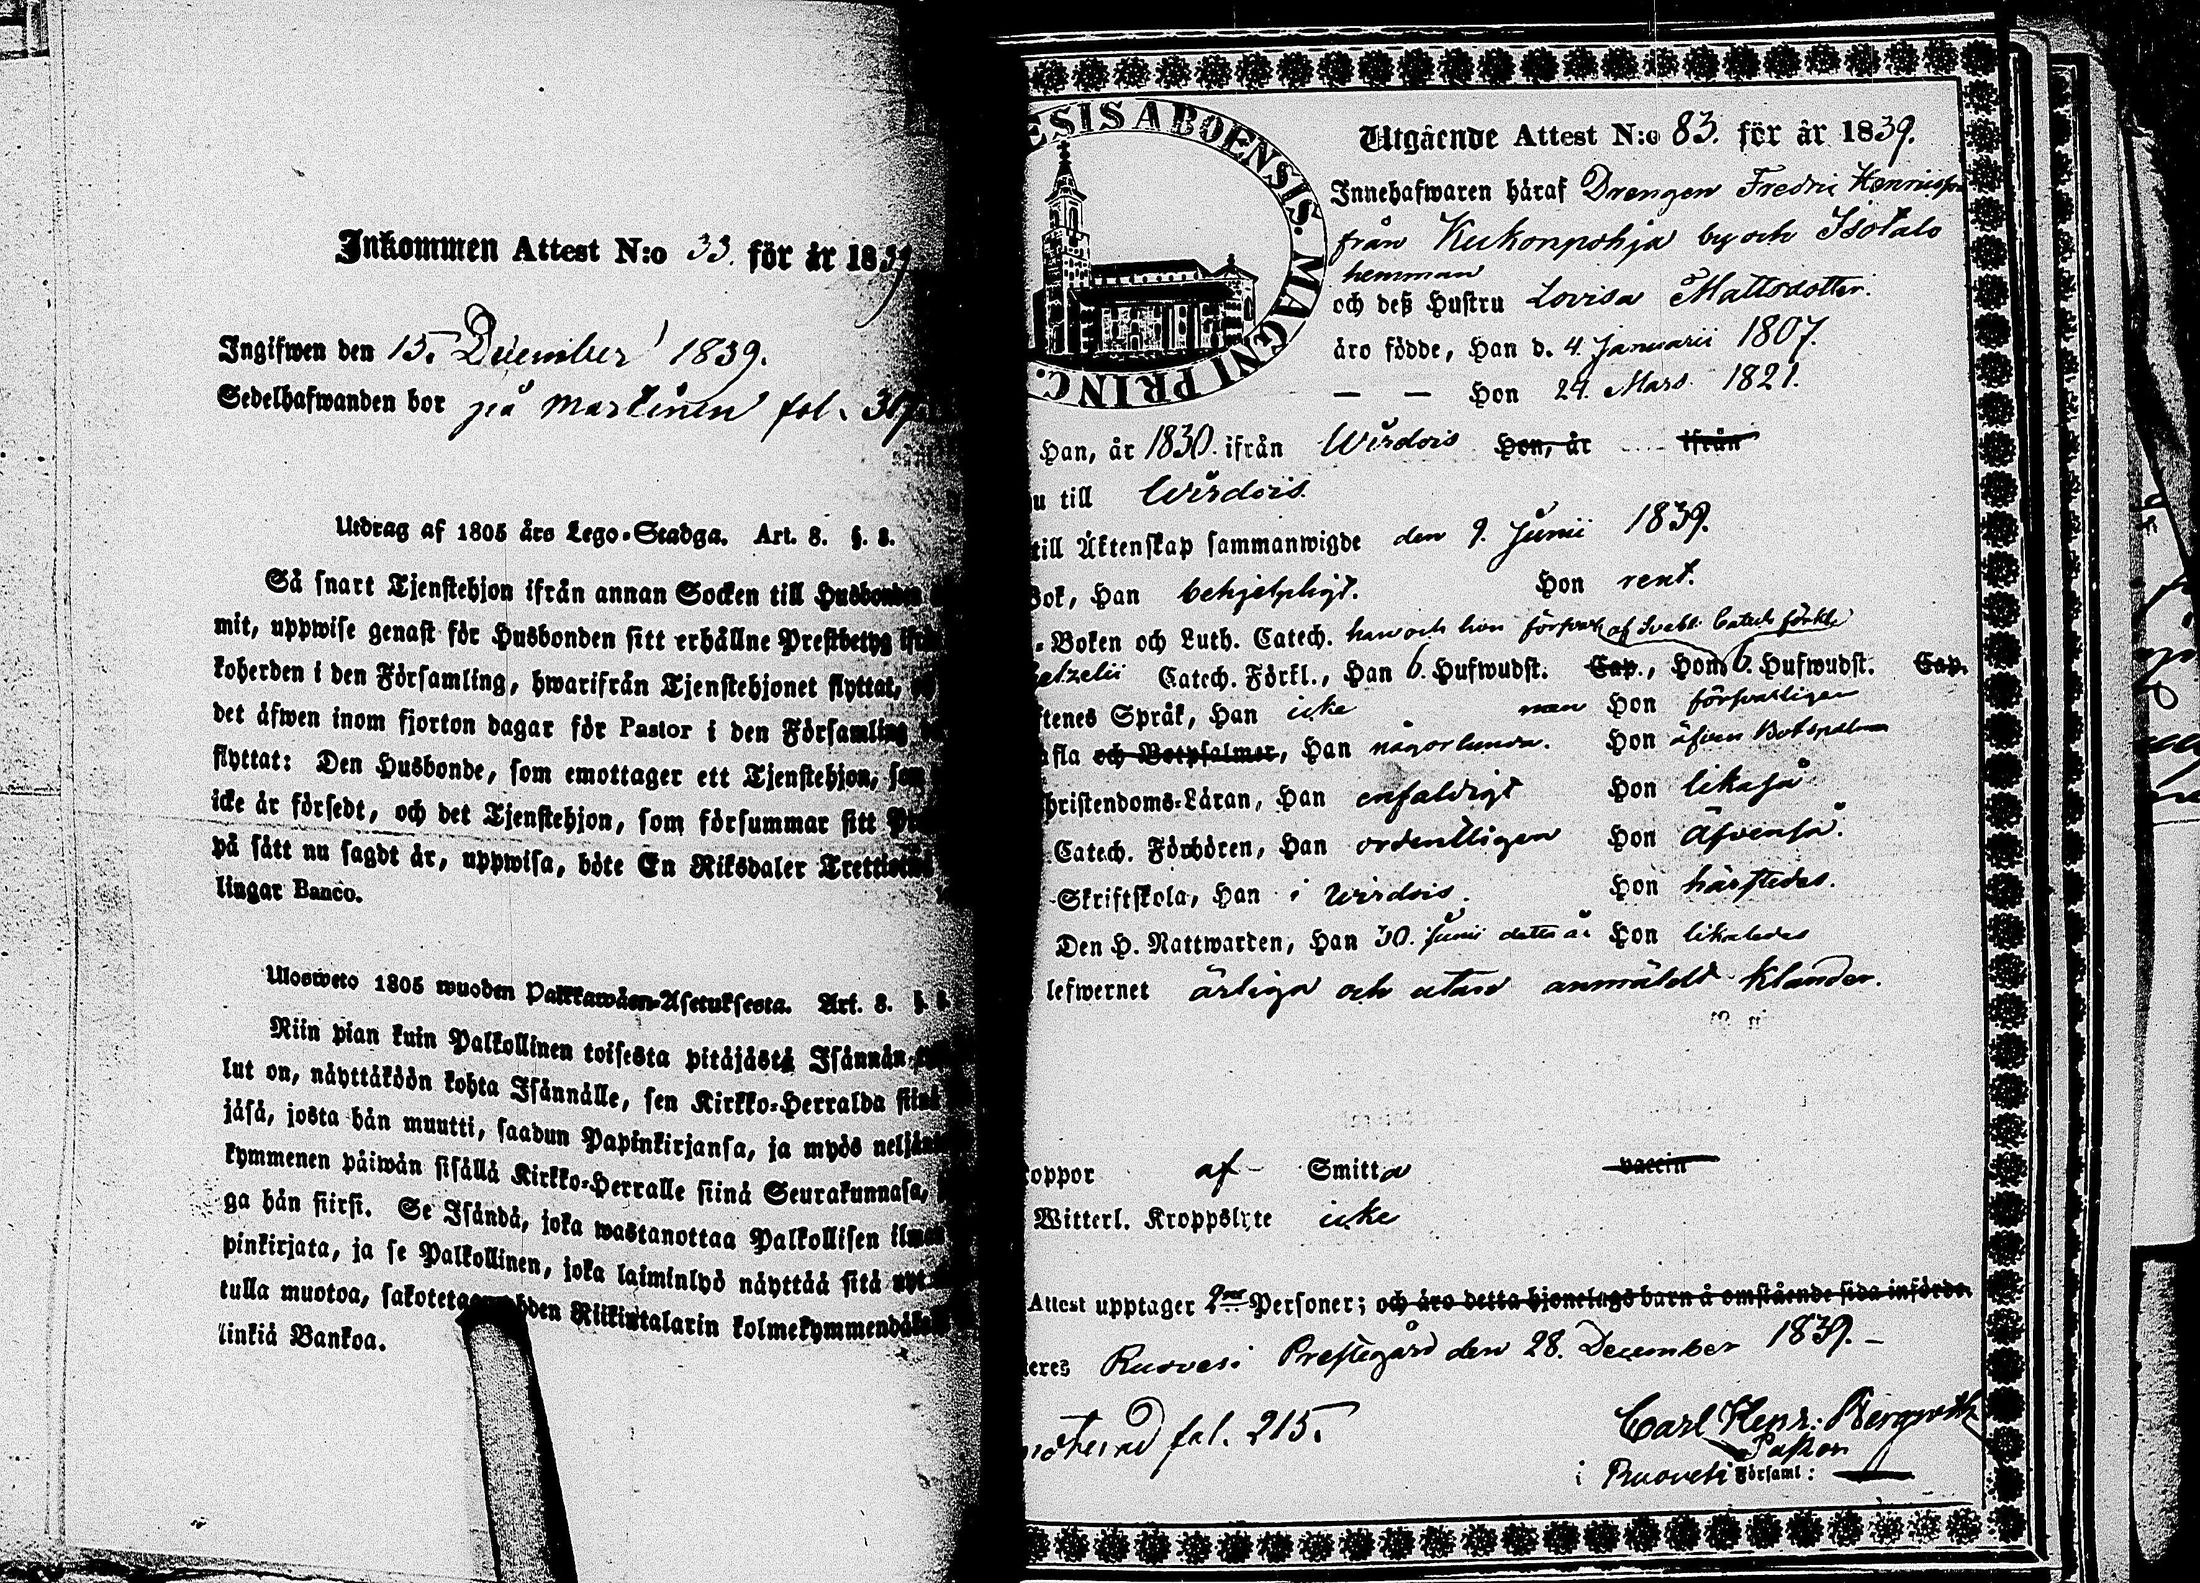 Inkommen Attest N:o 33. för år 1839
Ingifwen den 15. December 1839.
Sedelhafwanden bor på Martinen fol. 317
Utdrag af 1805 års Lego-Stadga. Art. 8. §. 8.
Så snart Tjenstehjon ifrån annan Socken till Husbonden
mit, uppwise genast för Husbonden sitt erhållne Prestbetyg
koherden i den Församling, hwarifrån Tjenstehjonet flyttat,
det äfwen inom fjorton dagar för Pastor i den Församling
flyttat: Den Husbonde, som emottager ett Tjenstehjon, som
icke är försedt, och det Tjenstehjon, som försummar sitt
på sätt nu sagdt är, uppwisa, böte En Riksdaler
lingar Banco.
Ulosweto 1805 wuoden Palkkawäen-Asetuksesta. Art. 8. §.
Niin pian kuin Palkollinen toisesta pitäjästä Isännän
lut on, näyttäköön kohta Isännälle, sen Kirkko-Herralda siinä
jäsä, josta hän muutti, saadun Papinkirjansa, ja myös neljän
kymmenen päiwän sisällä Kirkko-Herralle siinä Seurakunnasa,
ga hän siirsi. Se Isändä, joka wastanottaa Palkollisen ilman
pinkirjata, ja se Palkollinen, joka laiminlyö näyttää sitä
tulla muotoa, Riikintalarin
linkiä Bankoa.
ESIS ABOENSIS. MAGNI PRINC.
Utgående Attest N:o 83. för år 1839.
Innehafwaren häraf Drengen Fredric
från Kukonpohja by och Isotalo
hemman
och deß Hustru Lovisa Mattsdotter.
äro födde, Han d. 4. Januarii 1807.
— — Hon 24. Mars 1821.
Han, år 1830. ifrån Wirdois Hon, år ifrån
u till Wirdois.
till Äktenskap sammanwigde den 9. Junii 1839.
Bok, Han behjelpligt. Hon rent.
-Boken och Luth. Catech. han och hon af Svebel. Catech.
Catech. Förkl., Han 6. Hufwudst. Cap., Hon, 6. Hufwudst. Cap.
ftenes Språk, Han icke men Hon förswarligen
afla och Botpsalmer, Han någorlunda. Hon äfven
hristendoms-Läran, Han enfaldigt Hon likaså
Catech. Förhören, Han ordentligen Hon äfvenså.
Skriftskola, Han i Wirdois. Hon härstedes.
Den H. Nattwarden, Han 30. Junii detta år Hon likaledes
lefwernet ärliga och utan anmäldt klander.
koppor af Smitta vaccin
Witterl. Kroppslyte icke
Attest upptager 2ne Personer; och äro detta hjonelags barn å omstående sida införde.
eres Ruovesi Prestegård den 28. December 1839.
fol. 215.
Carl Henr. Bergroth
Pastor
i Ruovesi Församl: